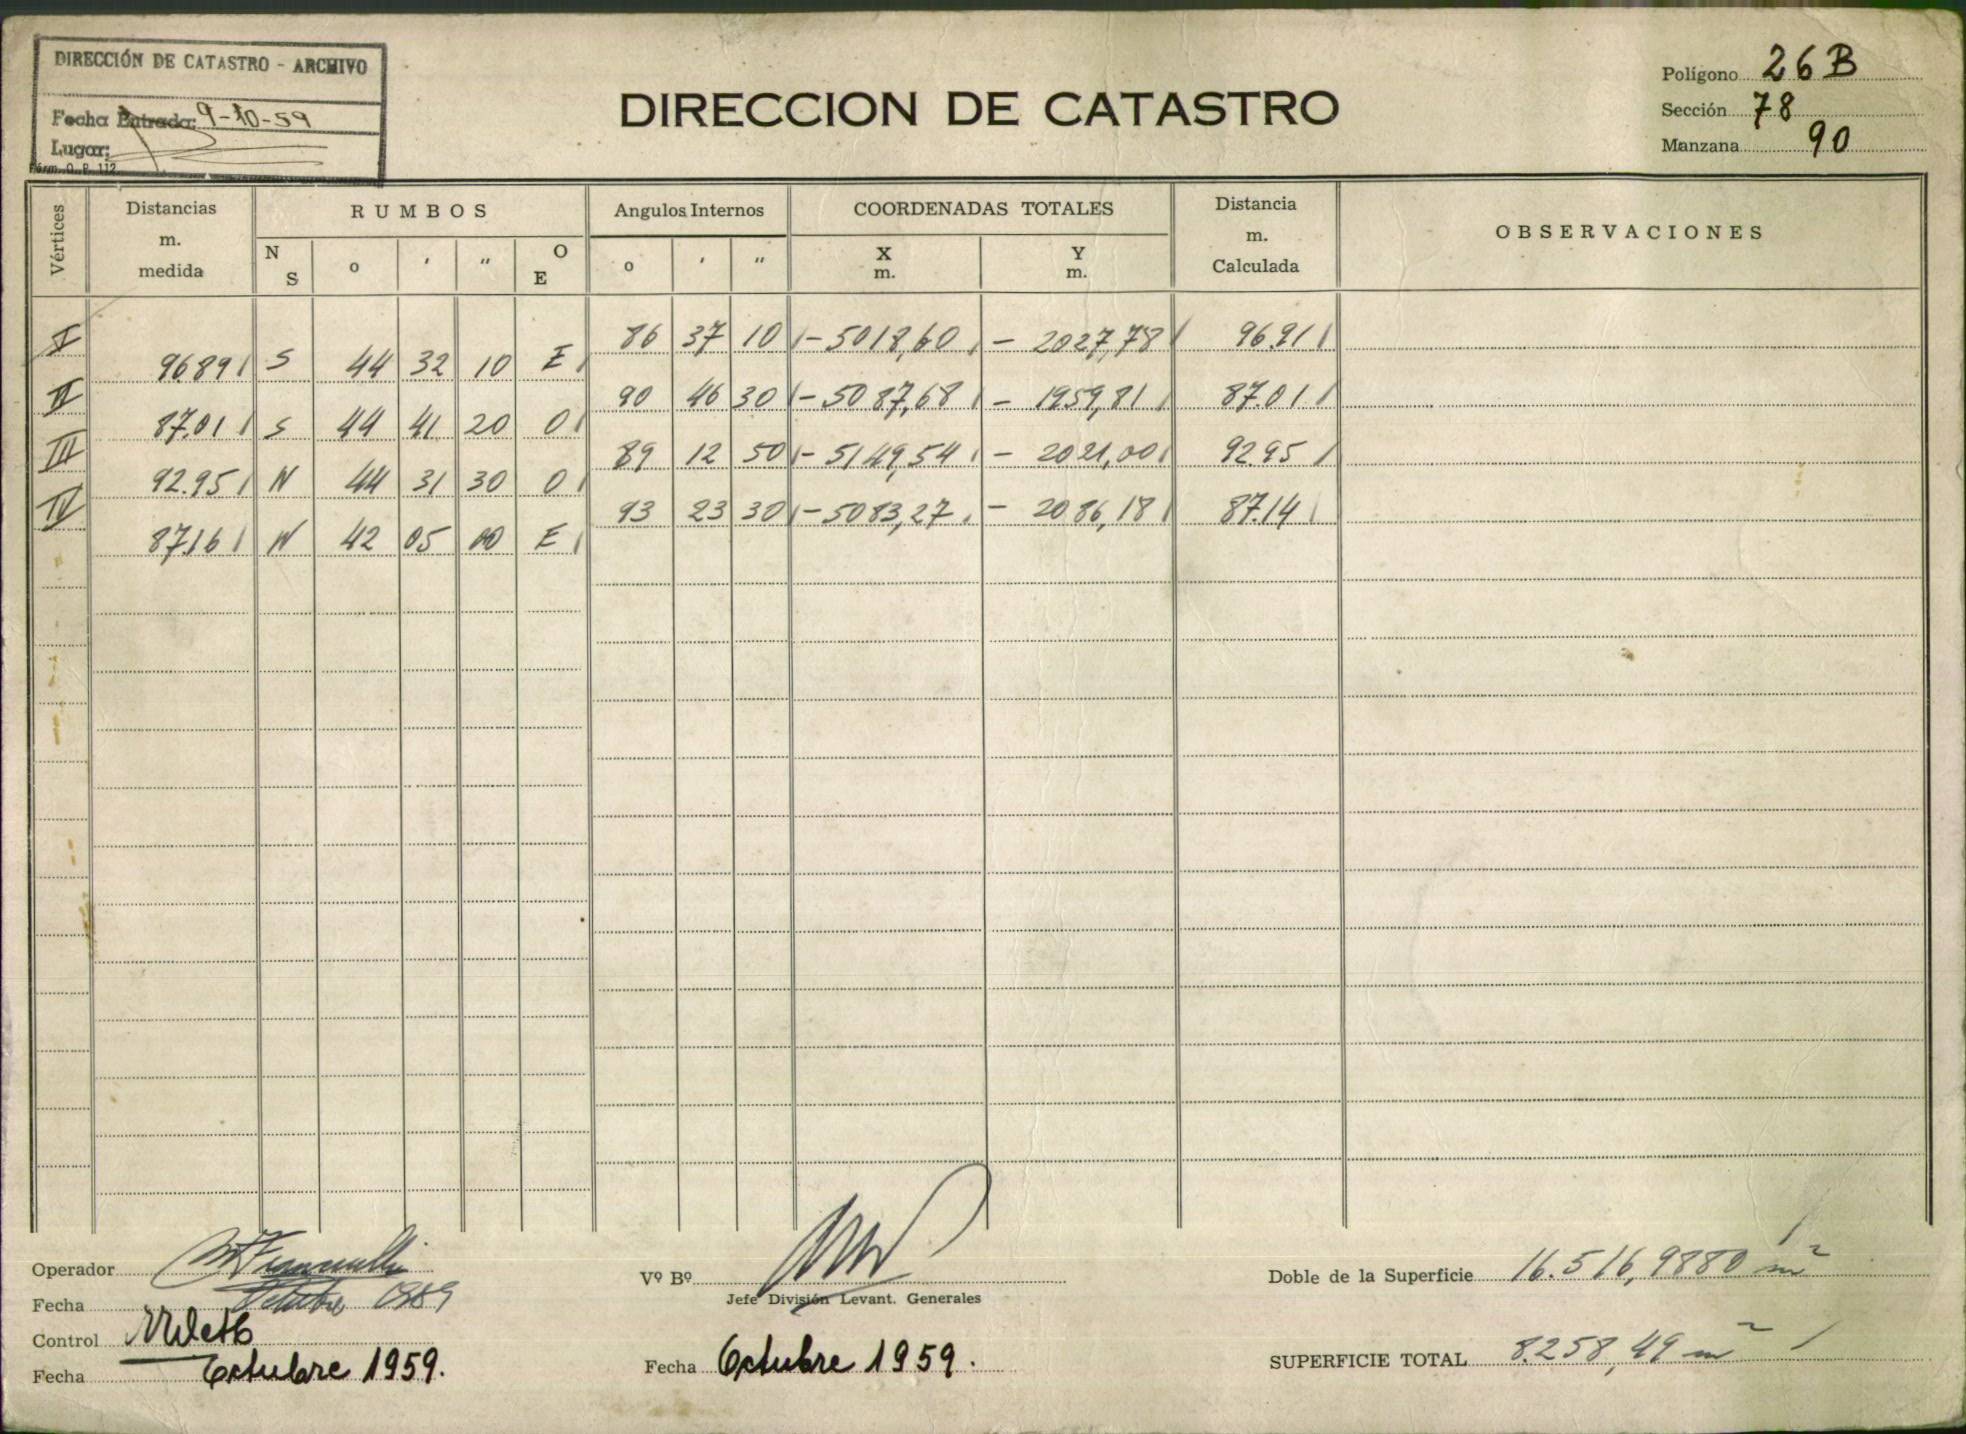 DIRECCIÓN DE CATASTRO - ARCHIVO
Fecha Entrada: 9-10-59
Lugar:
Fórm. O. P. 112
DIRECCION DE CATASTRO
Polígono 26B
Sección 78
Manzana 90
Vértices
Distancias m. medida
RUMBOS
N S o ' " O E
Angulos Internos
o ' "
COORDENADAS TOTALES
X m. Y m.
Distancia m. Calculada
OBSERVACIONES
I 86 37 10 -5018,60 - 2027,78 96.91
96.89 S 44 32 10 E
II 90 46 30 -5087,68 - 1959,81 87.01
87.01 S 44 41 20 O
III 89 12 50 -5149,54 - 2021,00 92.95
92.95 N 44 31 30 O
IV 93 23 30 -5083,27 - 2086,18 87.14
87.16 N 42 05 00 E
Operador
Fecha Octubre 1959
Control
Fecha Octubre 1959.
Vº Bº
Jefe División Levant. Generales
Fecha Octubre 1959.
Doble de la Superficie 16.516,9880 m²
SUPERFICIE TOTAL 8.258,49 m²